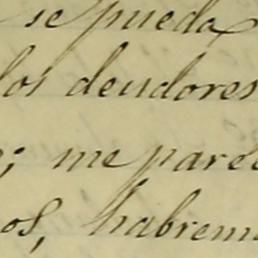 se pueda
los deudores
; me parec
os, habrem